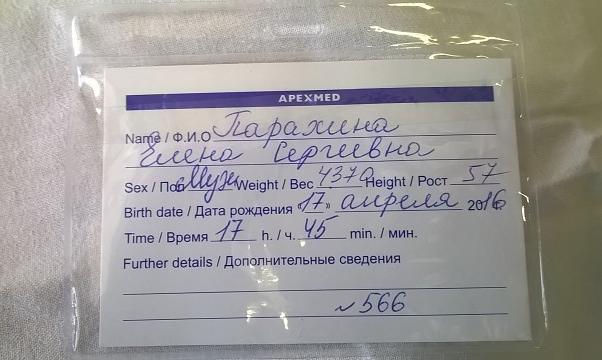 APEXMED
Name / Ф.И.О Парахина
Елена Сергеевна
Sex / Пол Муж Weight / Вес 4370 Height / Рост 57
Birth date / Дата рождения «17» апреля 2016
Time / Время 17 h. / ч. 45 min. / мин.
Further details / Дополнительные сведения
~566